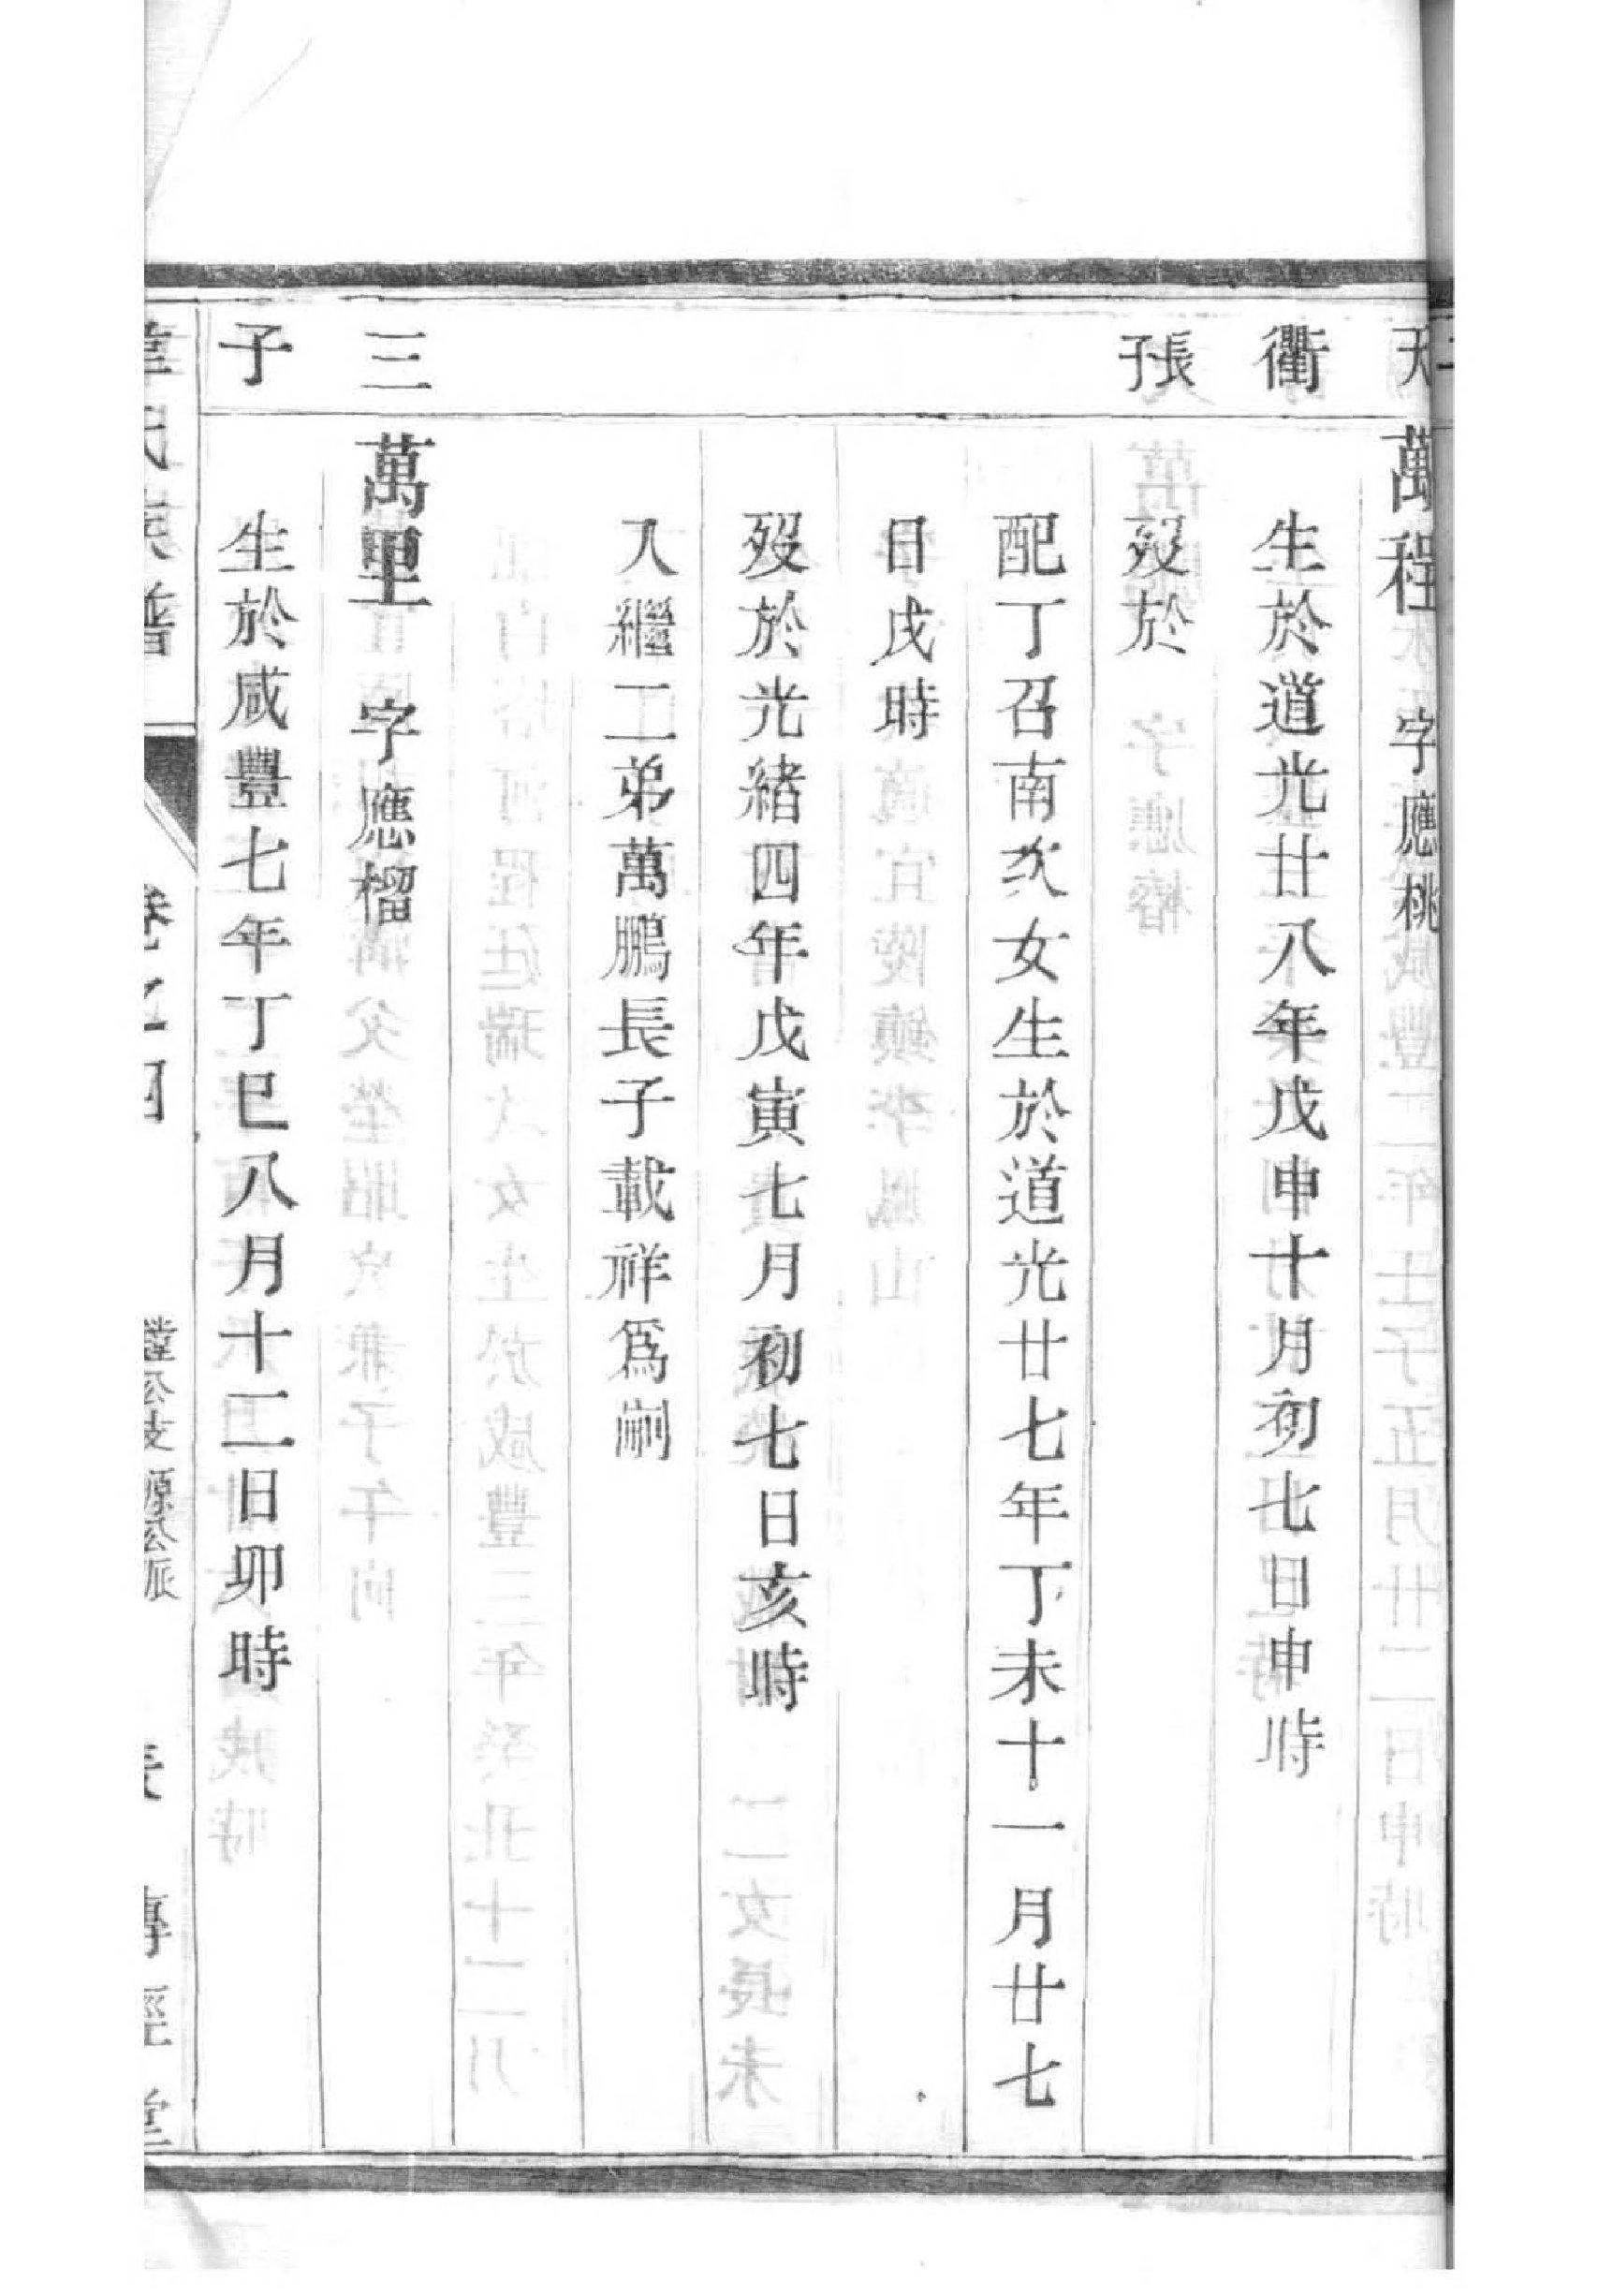 天衢
長子
萬程 字應桃
生於道光廿八年戊申十月初七日申時
歿於
配丁召南次女生於道光廿七年丁未十一月廿七
日戌時
歿於光緒四年戊寅七月初七日亥時
入繼二弟萬鵬長子載祥爲嗣
三子
萬里 字應榴
生於咸豐七年丁巳八月十二日卯時
氏族譜 卷之四 公支 源公派 長 傳經堂